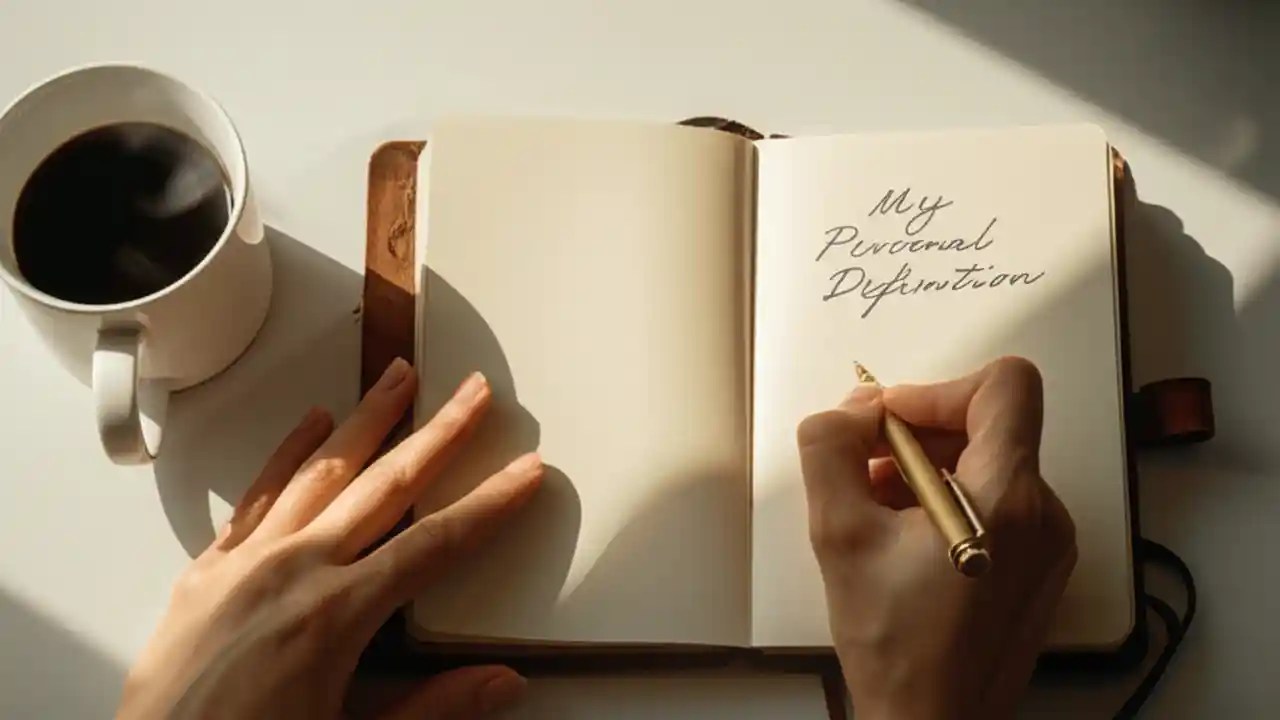 My
Personal
Definition